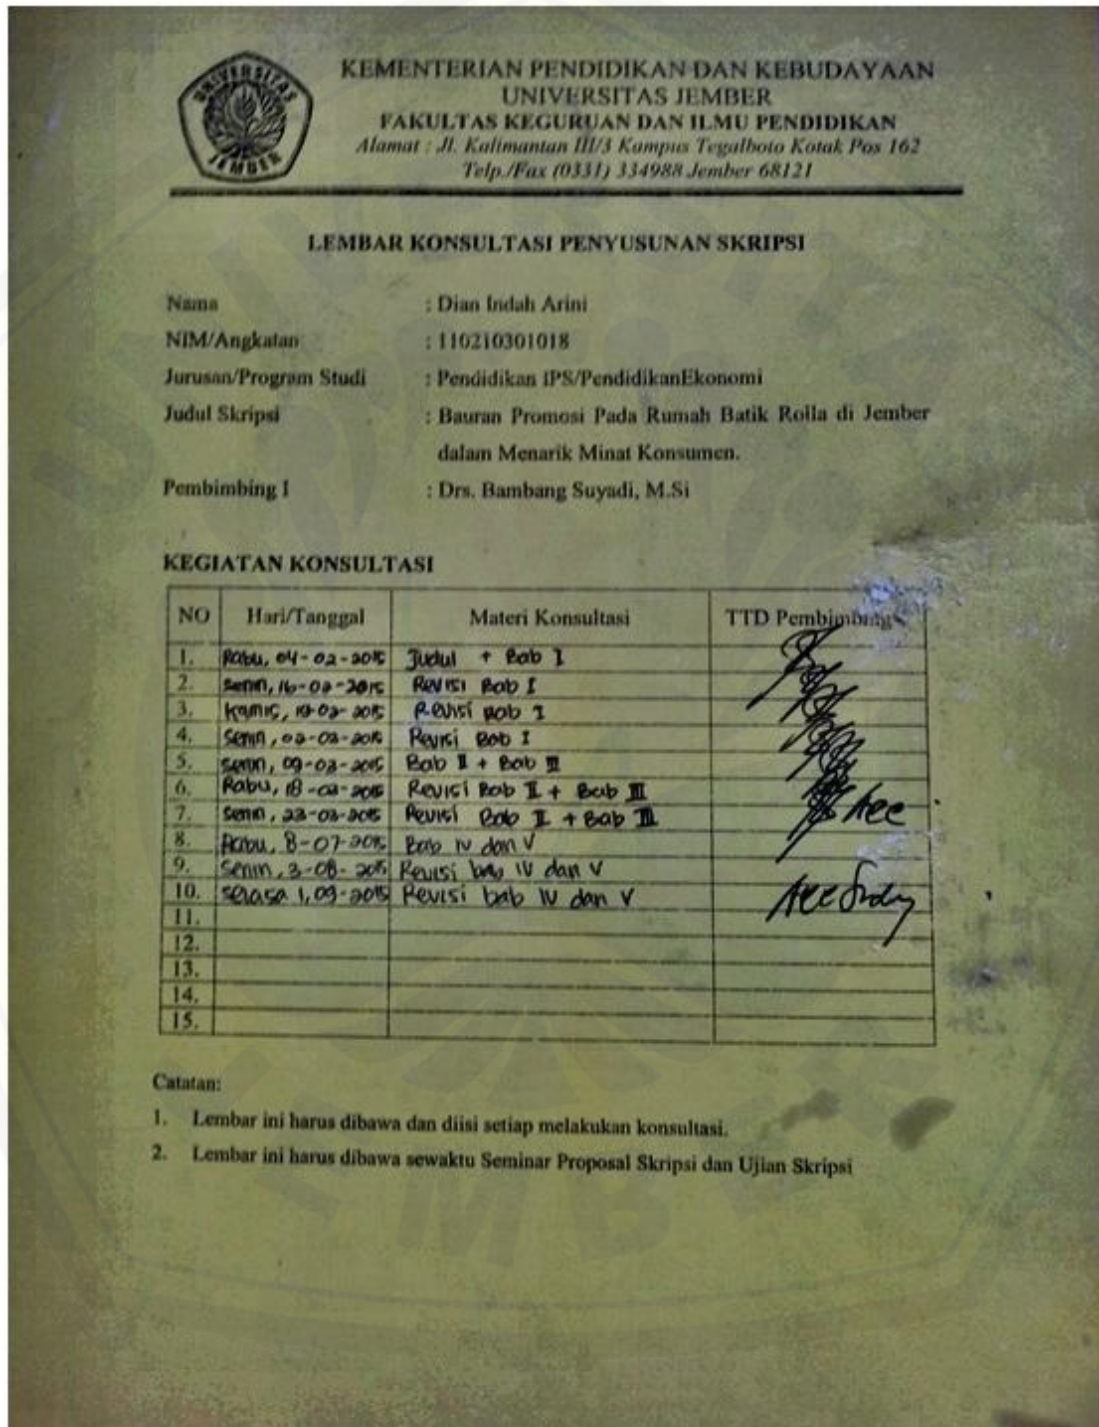 UNIVERSITAS
JEMBER
KEMENTERIAN PENDIDIKAN DAN KEBUDAYAAN
UNIVERSITAS JEMBER
FAKULTAS KEGURUAN DAN ILMU PENDIDIKAN
Alamat : Jl. Kalimantan III/3 Kampus Tegalboto Kotak Pos 162
Telp./Fax (0331) 334988 Jember 68121
LEMBAR KONSULTASI PENYUSUNAN SKRIPSI
Nama : Dian Indah Arini
NIM/Angkatan : 110210301018
Jurusan/Program Studi : Pendidikan IPS/PendidikanEkonomi
Judul Skripsi : Bauran Promosi Pada Rumah Batik Rolla di Jember
dalam Menarik Minat Konsumen.
Pembimbing I : Drs. Bambang Suyadi, M.Si
KEGIATAN KONSULTASI
NO Hari/Tanggal Materi Konsultasi TTD Pembimbing
1. Rabu, 04-02-2015 Judul + Bab I
2. Senin, 16-02-2015 Revisi Bab I
3. Kamis, 19-02-2015 Revisi Bab I
4. Senin, 02-03-2015 Revisi Bab I
5. Senin, 09-03-2015 Bab II + Bab III
6. Rabu, 18-03-2015 Revisi Bab II + Bab III
7. Senin, 23-03-2015 Revisi Bab II + Bab III Acc
8. Rabu, 8-07-2015 Bab IV dan V
9. Senin, 3-08-2015 Revisi bab IV dan V
10. Selasa 1, 09-2015 Revisi bab IV dan V Acc
11.
12.
13.
14.
15.
Catatan:
1. Lembar ini harus dibawa dan diisi setiap melakukan konsultasi.
2. Lembar ini harus dibawa sewaktu Seminar Proposal Skripsi dan Ujian Skripsi